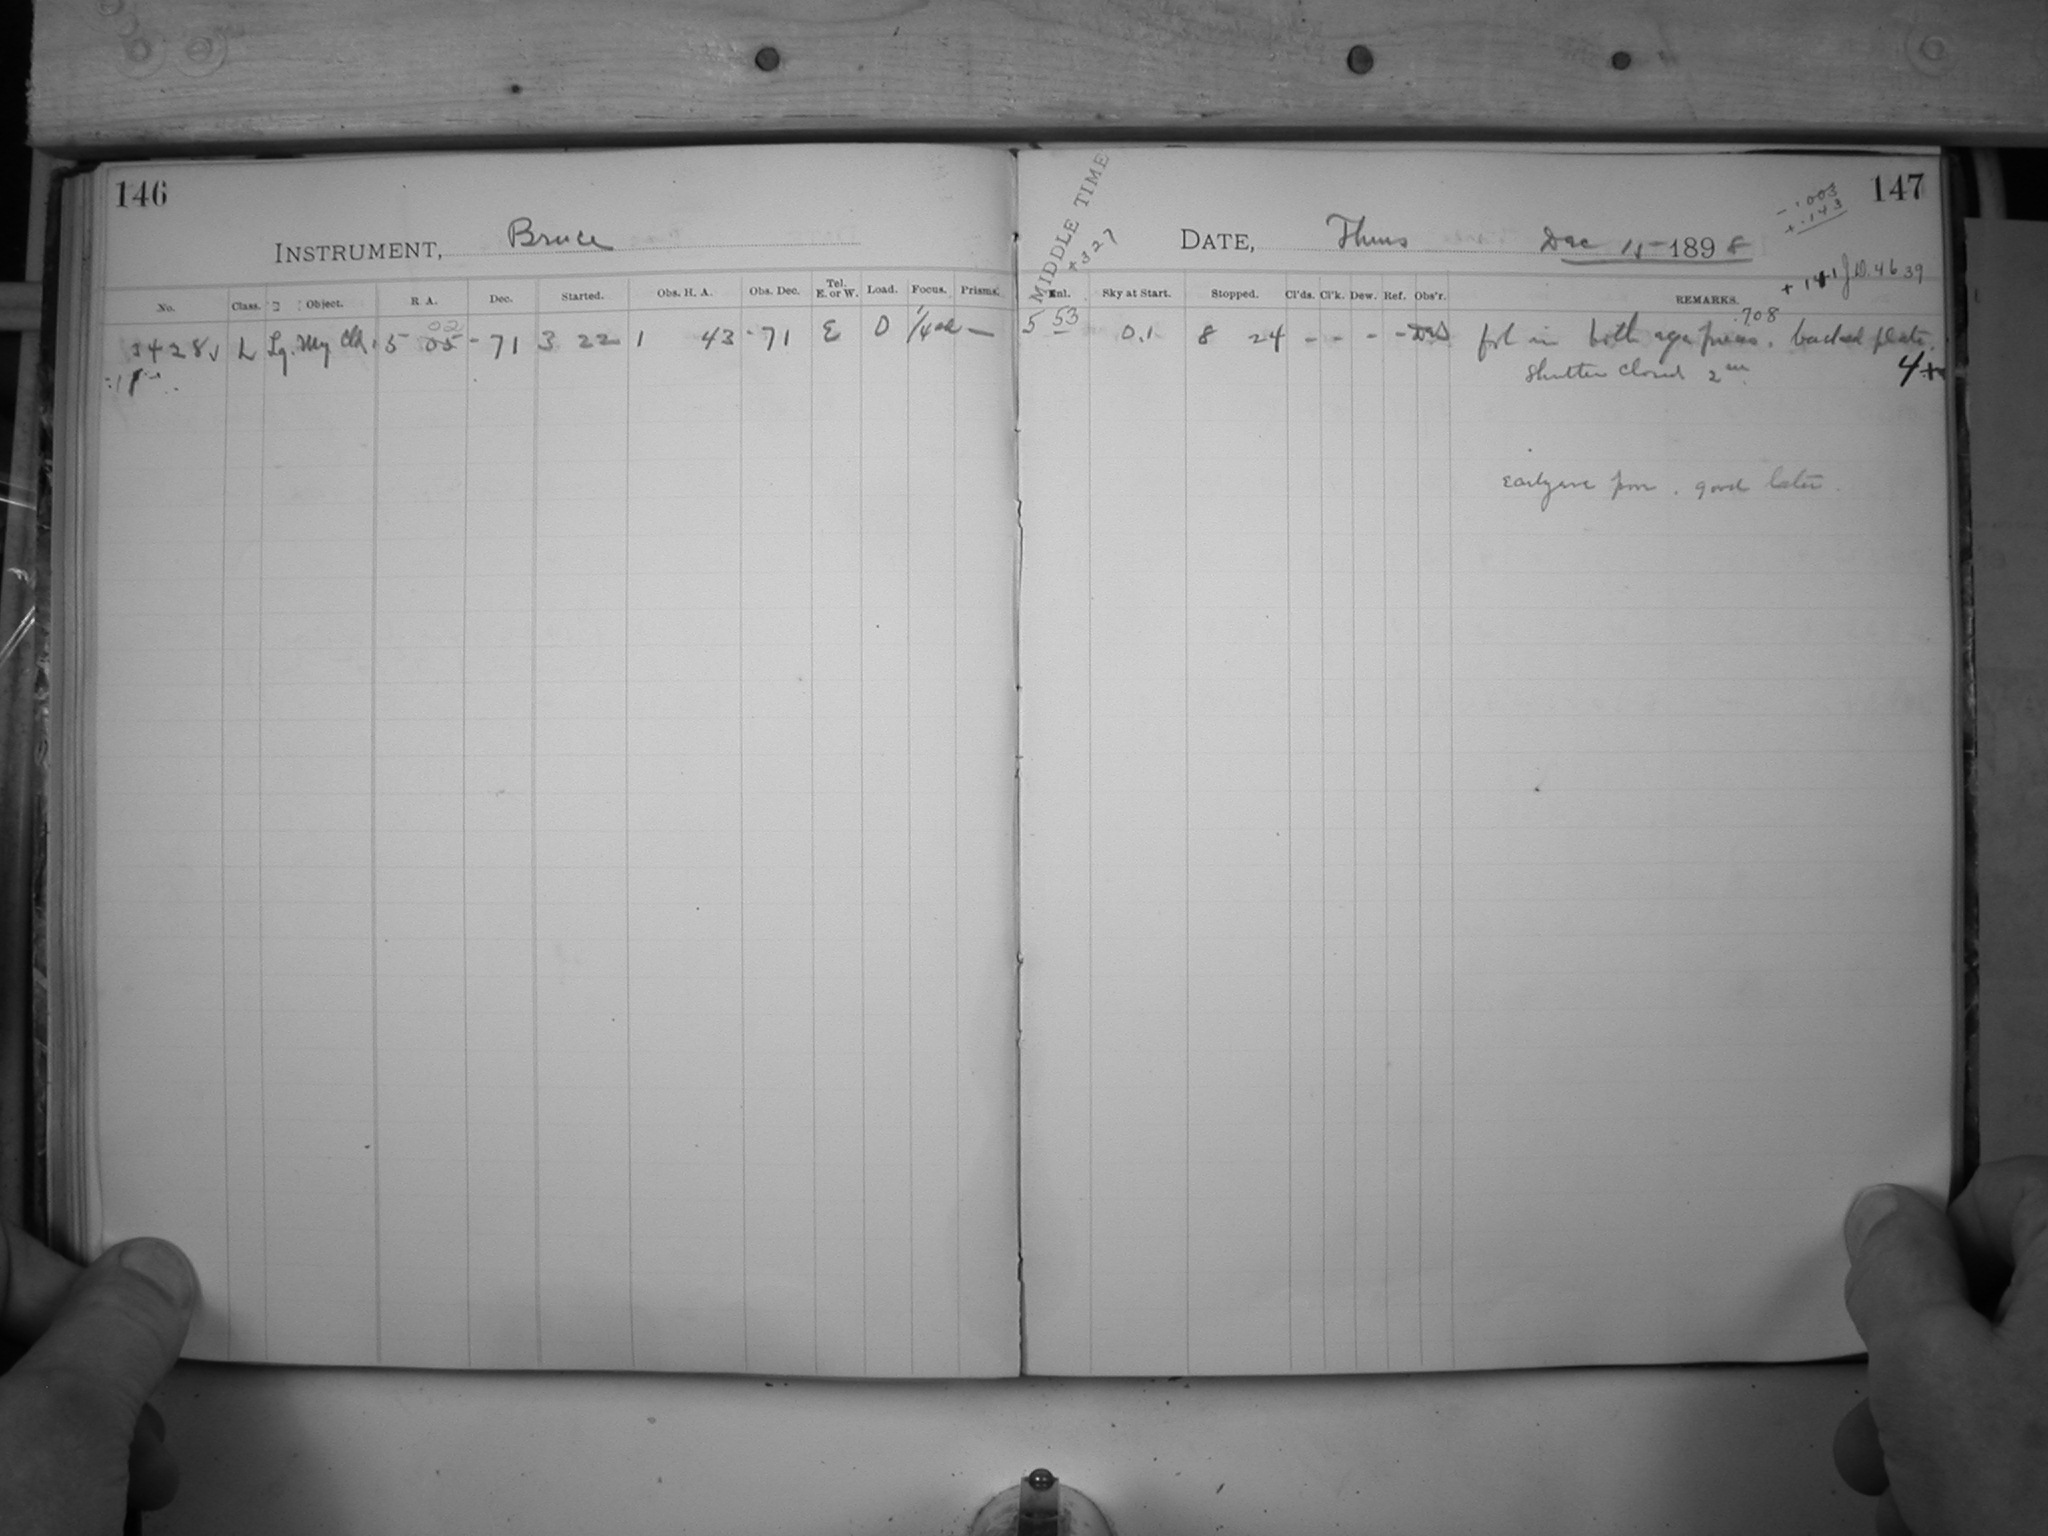 146
INSTRUMENT, Bruce
No. Class. Object. R A. Dec. Started. Obs. H. A. Obs. Dec. Tel. E. or W. Load. Focus. Prisms.
02
3428 √ L Lg. Mg Cld. 5 05 -71 3 22 1 43 -71 E 0 1/4 — 
147
MIDDLE TIME
+327
DATE, Thurs Dec 15 1898
- .003
+ .143
+ 141 J.D. 4639
Enl. Sky at Start. Stopped. Cl'ds. Cl'k. Dew. Ref. Obs'r. REMARKS.
.708
5 53 0.1 8 24 - - - - fol in both backed plate.
Shutter closed 2 m 4+
Early eve poor. good later.